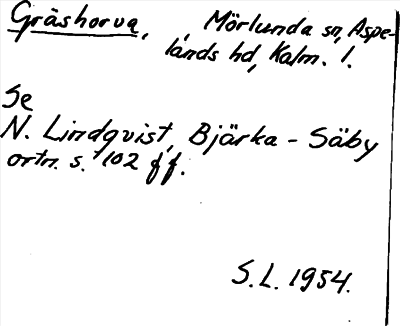 Gräshorva, , Mörlunda sn, Aspe-
lands hd, Kalm. l.
Se
N. Lindqvist, Bjärka - Säby
ortn. s. 102 ff.
S.L. 1954.